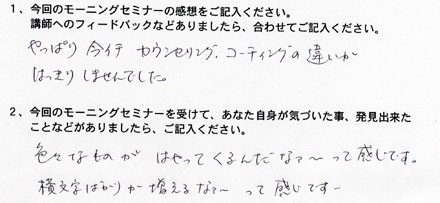 1、今回のモーニングセミナーの感想をご記入ください。
講師へのフィードバックなどありましたら、合わせてご記入ください。
やっぱり 今イチ カウンセリング、コーチングの違いが
はっきりしませんでした。
2、今回のモーニングセミナーを受けて、あなた自身が気づいた事、発見出来た
ことなどがありましたら、ご記入ください。
色々なものが はやってくるんだなァ〜って感じです。
横文字ばかりが増えるなァ〜 って 感じです〜